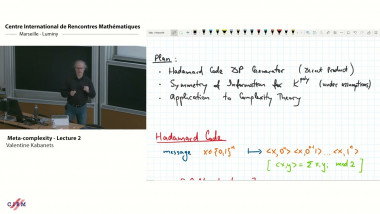 Centre International de Rencontres Mathématiques
Marseille - Luminy
Plan:
• Hadamard Code DP Generator (Direct Product)
• Symmetry of Information for K^poly (under assumptions)
• Application to Complexity Theory
Hadamard Code
message x∈{0,1}^n ↦ <x,0^n> <x,0^{n-1}1> ... <x,1^n>
[ <x,y> = Σ x_i y_i mod 2 ]
Meta-complexity - Lecture 2
Valentine Kabanets
CIRM